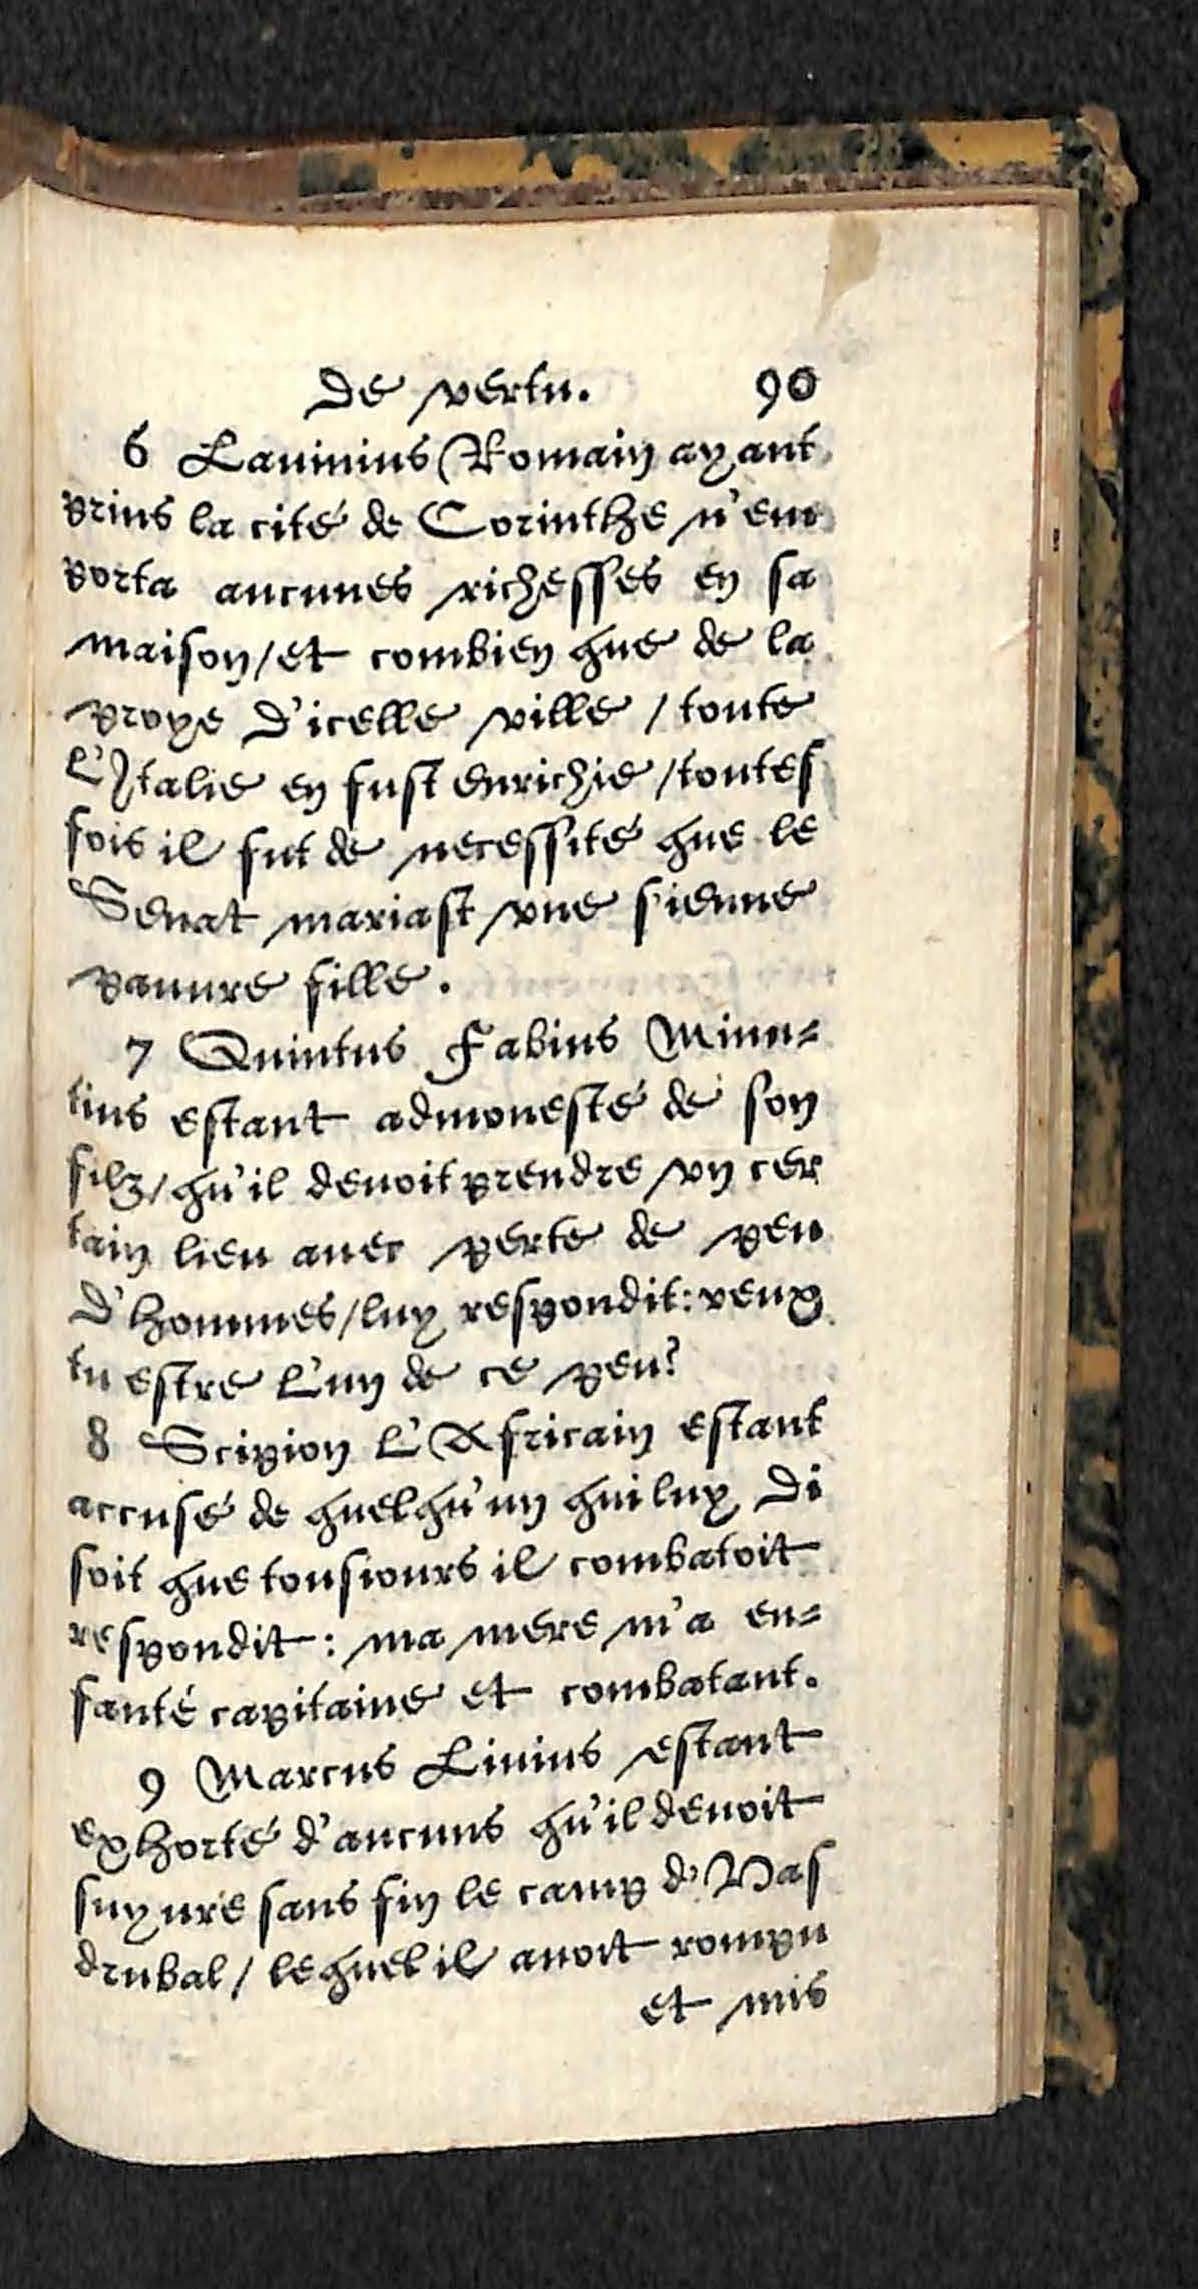 de vertu. 90
6 Lauinius Romain ayant
prins la cité de Corinthe n'em
porta aucunes richesses en sa
maison/et combien que de la
proye d'icelle ville / toute
l'Italie en fust enrichie /toutes
fois il fut de necessité que le
Senat mariast vne sienne
pauure fille.
7 Quintus Fabius Minu=
tius estant admonesté de son
filz/qu'il deuoit prendre vn cer
tain lieu auec perte de peu
d'hommes/luy respondit: veux
tu estre l'un de ce peu?
8 Scipion l'Africain estant
accusé de quelqu'un qui luy di
soit que tousiours il combatoit
respondit: ma mere m'a en=
fanté capitaine et combatant.
9 Marcus Liuius estant
exhorté d'aucuns qu'il deuoit
suyure sans fin le camp d'Has
drubal/ lequel il auoit rompu
et mis